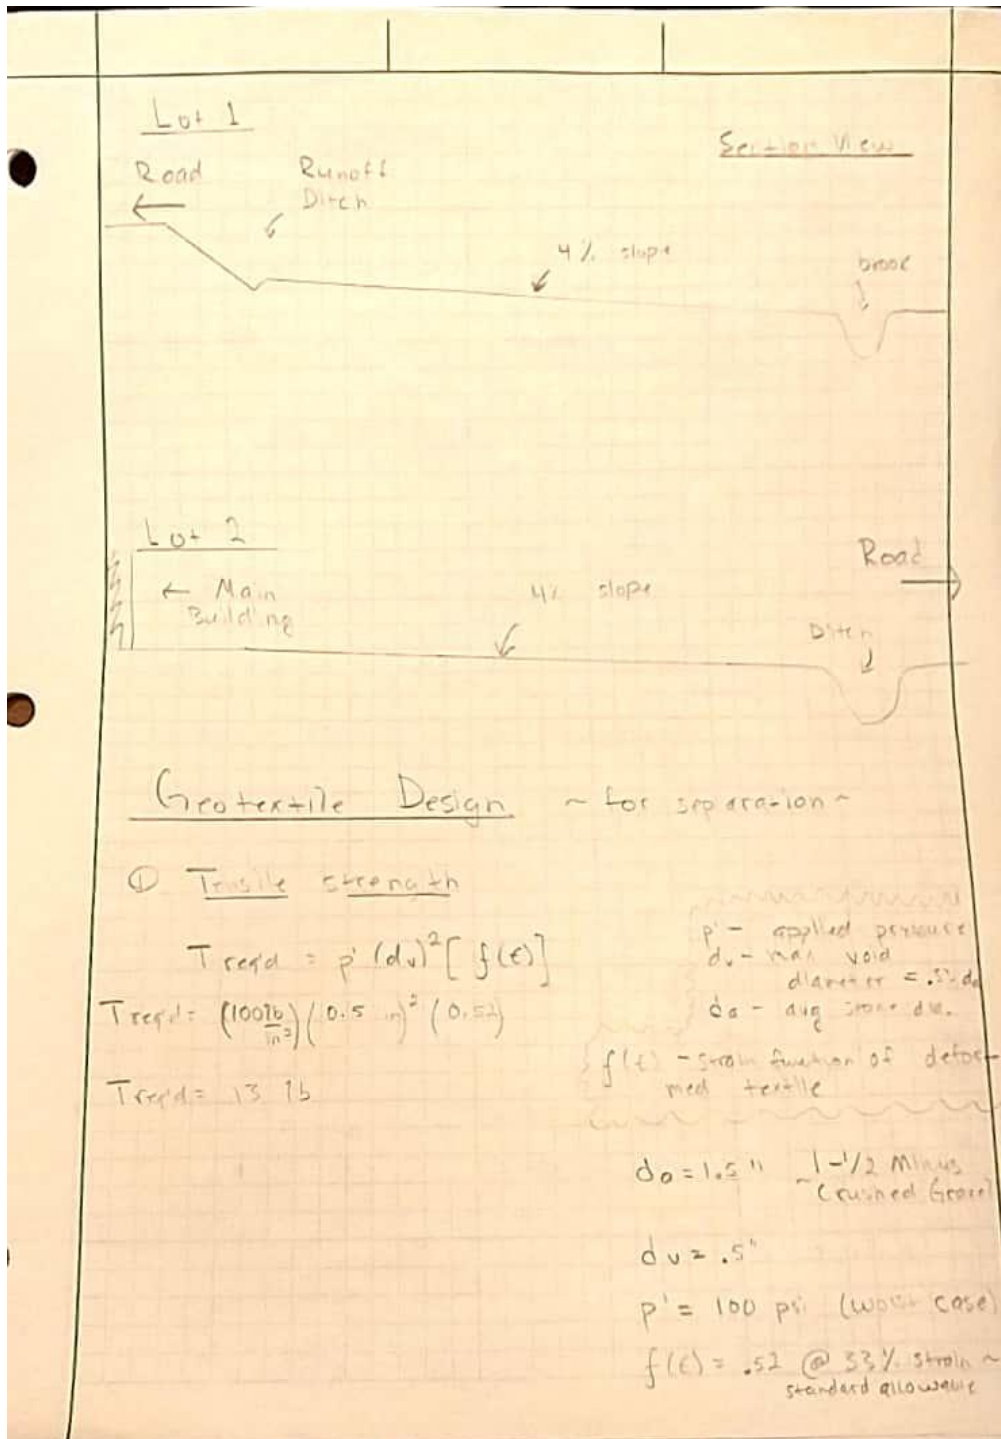 Lot 1
Section View
Road
Runoff
Ditch
4% slope
brook
Lot 2
Road
← Main
Building
4% slope
Ditch
Geotextile Design ~ for separation ~
① Tensile strength
T req'd = p' (dv)² [ f(ε) ]
T req'd = (100 lb/in²) (0.5 in)² (0.52)
T req'd = 13 lb
p' - applied pressure
dv - max void
diameter = .33 da
da - avg stone dia.
f(ε) - strain function of defor-
med textile
da = 1.5" 1-1/2 Minus
~ Crushed Gravel
dv = .5"
p' = 100 psi (worst case)
f(ε) = .52 @ 33% strain ~
standard allowable